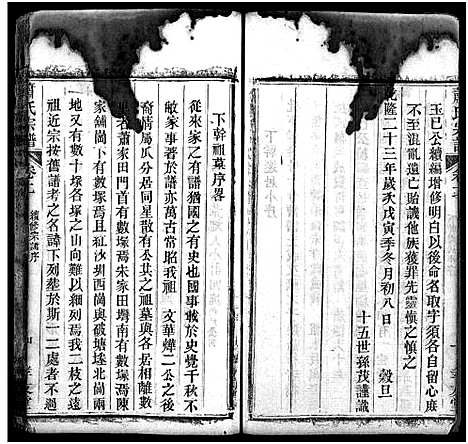 玉已公續編增修明白以後命名取字須各自留心庶
不至混亂遺亡貽譏他族獲罪先靈愼之愼之
隆二十三年歲次戊寅季冬月初八日 穀旦
十五世孫茂謹識
下幹祖墓序畧
從來家之有譜猶國之有史也國事載於史覺千秋不
敝家事著於譜亦萬古常昭我祖 文華燁二公之後
裔情屬瓜分居同星散有公共之祖墓與各居相離數
里名蕭家田門首有數塚焉朱家田壪南有數塚焉陳
家舖崗下有數塚焉且紅沙圳西崗與破塘垅北崗兩
地又有數十塚各塚之山向難以細列焉我二枝之遠
祖近宗按舊譜考之名諱下列塟於斯一二處者不
蕭氏宗譜
卷之
續修宗譜序